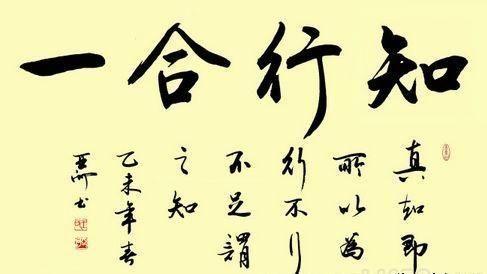 知行合一
真知即
所以為
行不行
不足謂
之知
乙未年春
亚洲书